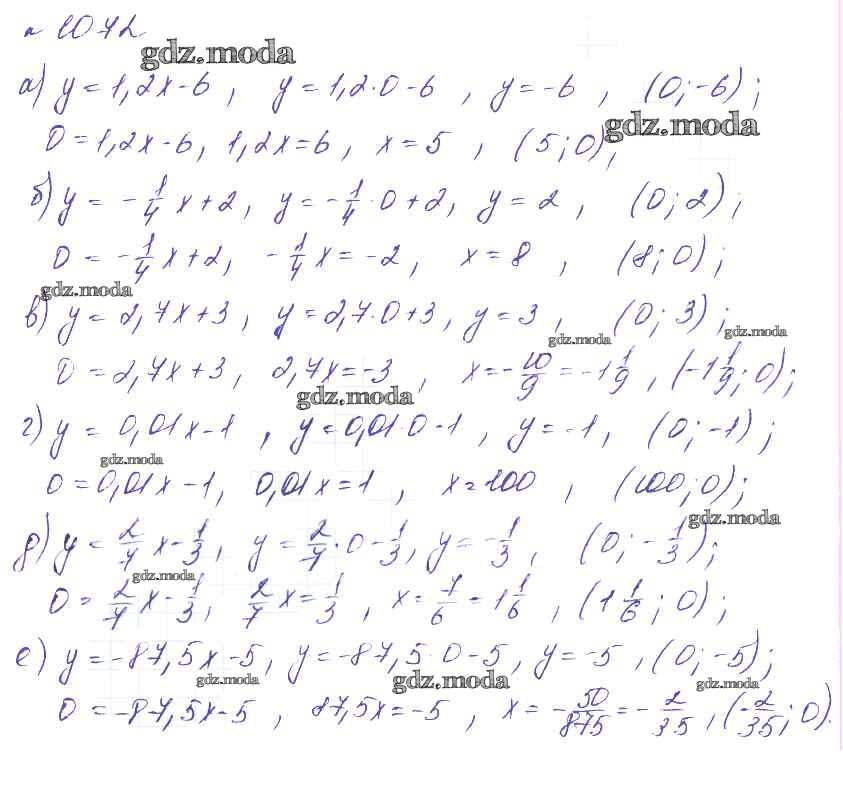 № 1072
gdz.moda
а) y = 1,2x - 6 , y = 1,2·0 - 6 , y = -6 , (0; -6);
gdz.moda
0 = 1,2x - 6, 1,2x = 6 , x = 5 , (5; 0),
б) y = -1/4 x + 2, y = -1/4 · 0 + 2, y = 2 , (0; 2);
0 = -1/4 x + 2, -1/4 x = -2 , x = 8 , (8; 0);
gdz.moda
в) y = 2,7x + 3, y = 2,7·0 + 3, y = 3 , (0; 3);
gdz.moda gdz.moda
0 = 2,7x + 3, 2,7x = -3 , x = -10/9 = -1 1/9 , (-1 1/9; 0);
gdz.moda
г) y = 0,01x - 1 , y = 0,01·0 - 1 , y = -1, (0; -1);
gdz.moda
0 = 0,01x - 1, 0,01x = 1 , x = 100 , (100; 0);
gdz.moda
д) y = 2/7 x - 1/3, y = 2/7 · 0 - 1/3, y = -1/3 , (0; -1/3);
gdz.moda
0 = 2/7 x - 1/3, 2/7 x = 1/3 , x = 7/6 = 1 1/6 , (1 1/6; 0);
е) y = -87,5x - 5, y = -87,5·0 - 5, y = -5 , (0; -5);
gdz.moda gdz.moda gdz.moda
0 = -87,5x - 5 , 87,5x = -5 , x = -50/875 = -2/35 , (-2/35; 0).